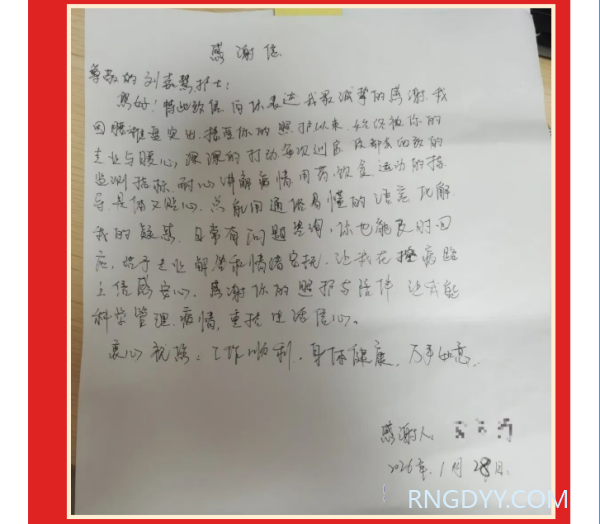 感谢信
尊敬的刘春慧护士：
您好！特此致信，向你表达我最诚挚的感谢。我
因腰椎盘突出，接受你的照护以来，始终被你的
专业与暖心，深深的打动。每次过后，你都会细致的
监测指标，耐心讲解病情，用药，饮食，运动的指
导，具体又贴心，总能用通俗易懂的语言化解
我的疑惑，日常有问题咨询，你也能及时回
应，给予专业解答和情绪安抚，让我在控病路
上倍感安心。感谢你的照护与陪伴，让我能
科学管理病情，重拾生活信心。
衷心祝愿：工作顺利，身体健康，万事如意。
感谢人
2026年1月28日
RNGDYY.COM